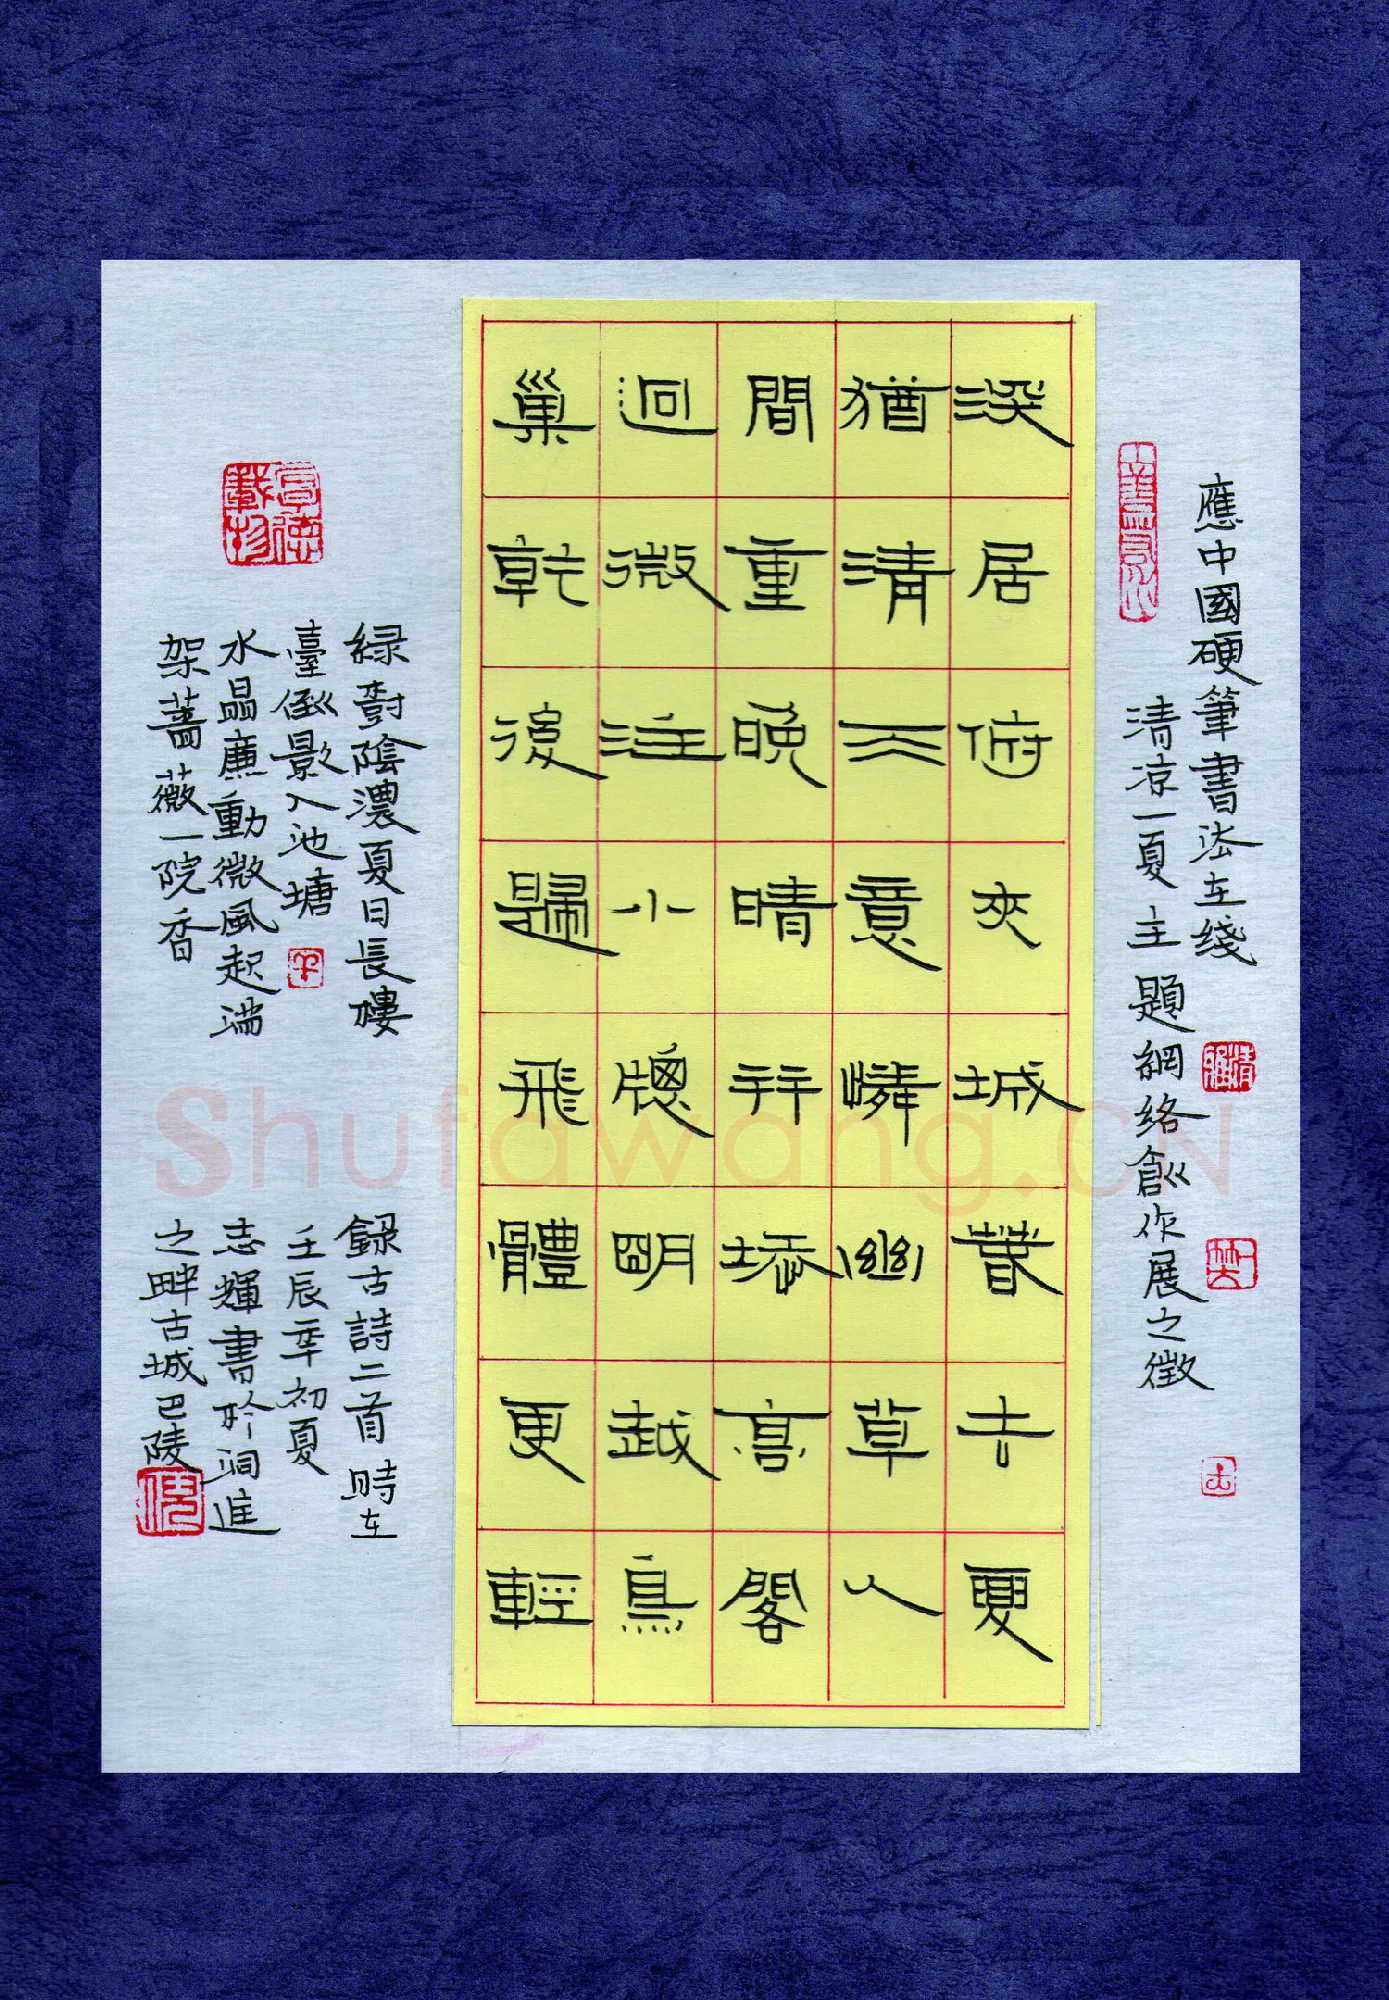 應中國硬筆書法在綫
清凉一夏主題網絡創作展之徵
上善若水
深居俯夾城春去夏
猶清天意憐幽草人
間重晚晴并添高閣
迥微注小牕明越鳥
巢乾後歸飛體更輕
厚德載物
緑樹陰濃夏日長樓
臺倒影入池塘
水晶廉動微風起滿
架薔薇一院香
録古詩二首時在
壬辰年初夏
志輝書於洞庭
之畔古城巴陵
Shufawang.CN